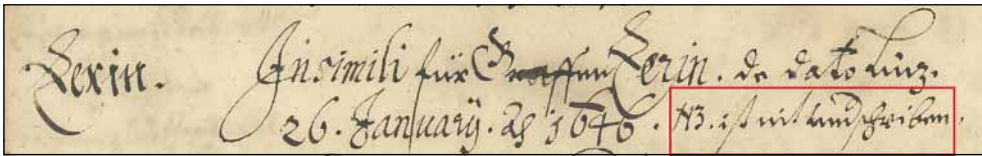 Zerin. Insimili für Graffen Zerin. de dato Linz.
26. Januarÿ. aō 1646. NB. ist nit undschriben.